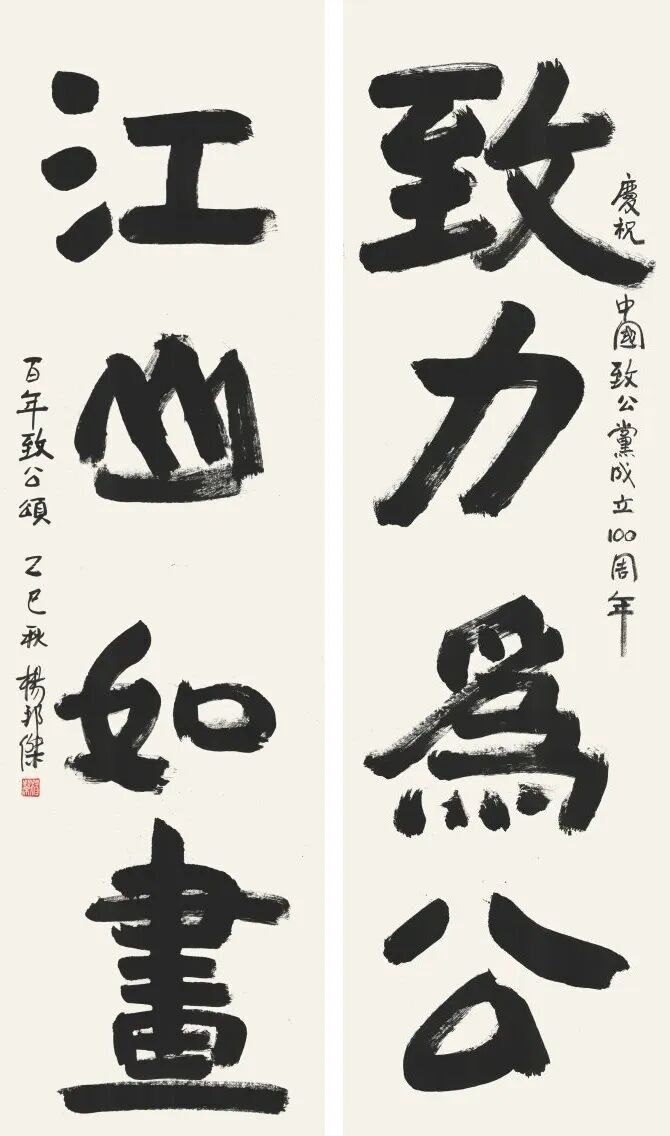 慶祝中國致公黨成立100周年
致力為公
江山如畫
百年致公頌 乙巳秋 楊邦傑